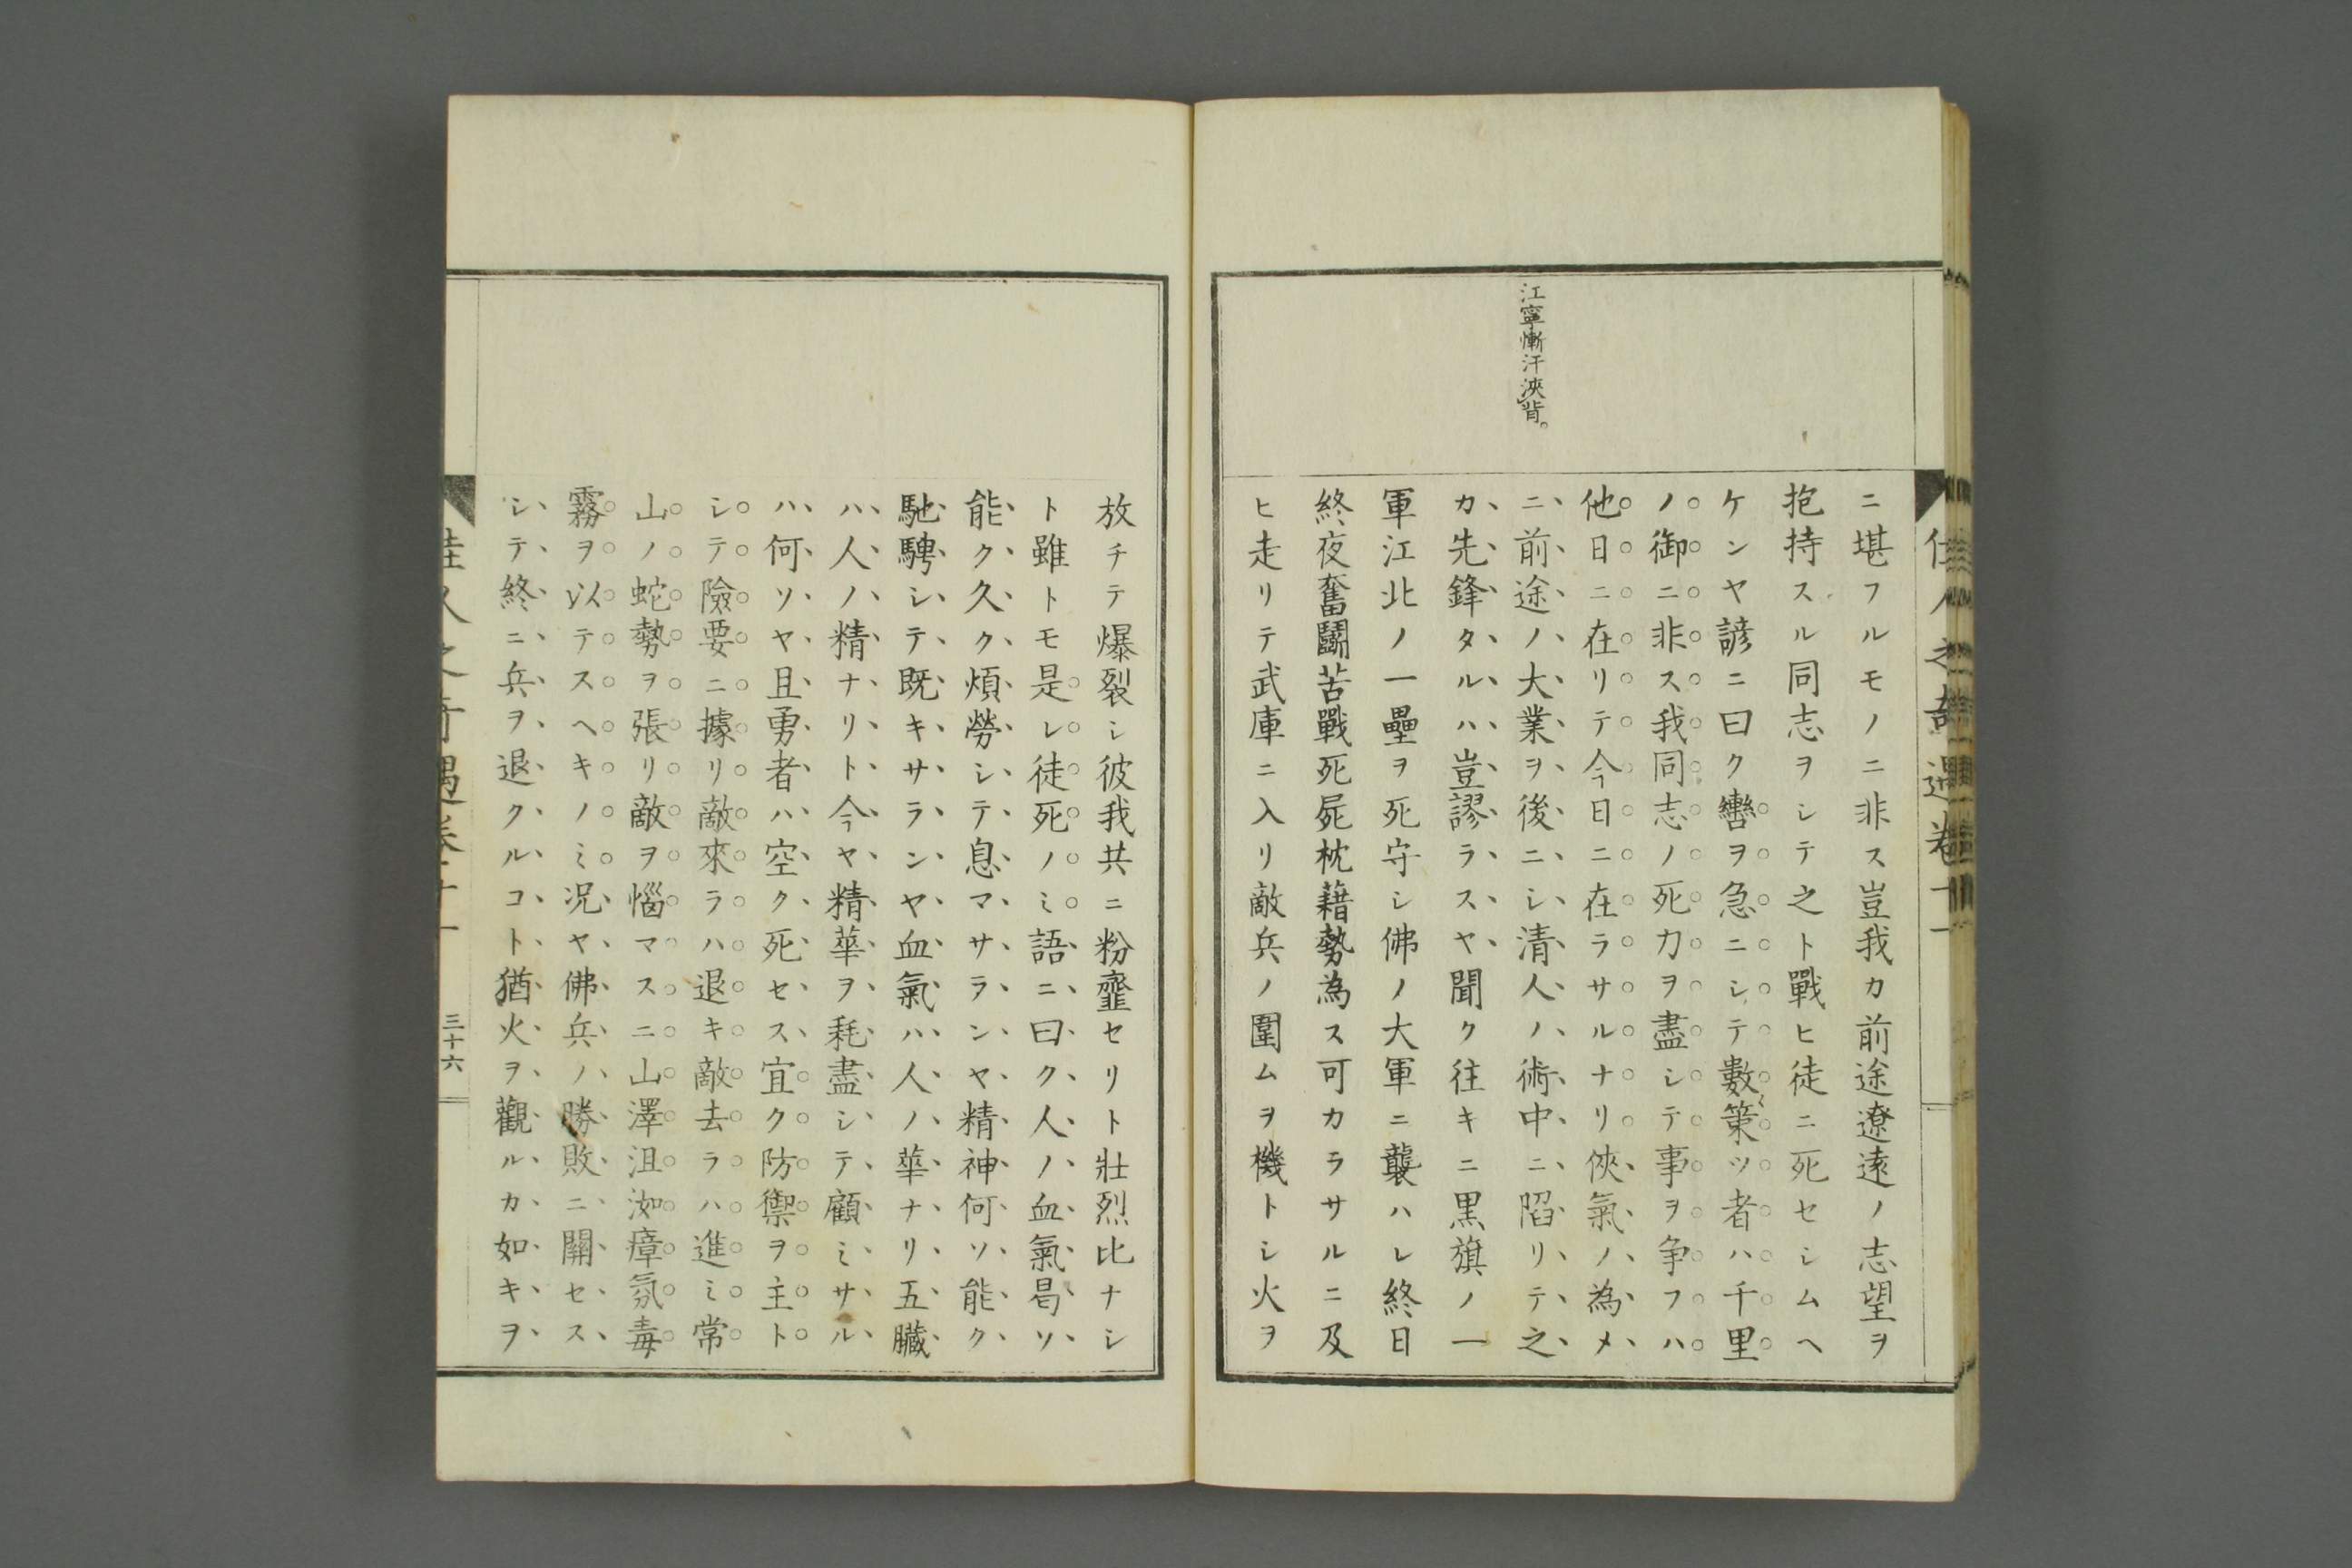 佳人之奇遇卷十一
江寧慚汗浹背。
ニ堪フルモノニ非ス豈我カ前途遼遠ノ志望ヲ
抱持スル同志ヲシテ之ト戰ヒ徒ニ死セシムヘ
ケンヤ諺ニ曰ク轡ヲ急ニシテ數〻策ツ者ハ千里
ノ御ニ非ス我同志ノ死力ヲ盡シテ事ヲ争フハ
他日ニ在リテ今日ニ在ラサルナリ俠氣ノ為メ
ニ前途ノ大業ヲ後ニシ清人ノ術中ニ陷リテ之
カ先鋒タルハ豈謬ラスヤ聞ク往キニ黒旗ノ一
軍江北ノ一壘ヲ死守シ佛ノ大軍ニ襲ハレ終日
終夜奮鬪苦戰死屍枕藉勢為ス可カラサルニ及
ヒ走リテ武庫ニ入リ敵兵ノ圍ムヲ機トシ火ヲ
放チテ爆裂シ彼我共ニ粉韲セリト壯烈比ナシ
ト雖トモ是レ徒死ノミ語ニ曰ク人ノ血氣曷ソ
能ク久ク煩勞シテ息マサランヤ精神何ソ能ク
馳騁シテ既キサランヤ血氣ハ人ノ華ナリ五臟
ハ人ノ精ナリト今ヤ精華ヲ耗盡シテ顧ミサル
ハ何ソヤ且勇者ハ空ク死セス宜ク防禦ヲ主ト
シテ險要ニ據リ敵來ラハ退キ敵去ラハ進ミ常
山ノ蛇勢ヲ張リ敵ヲ惱マスニ山澤沮洳瘴氛毒
霧ヲ以テスヘキノミ況ヤ佛兵ノ勝敗ニ關セス
シテ終ニ兵ヲ退クルコト猶火ヲ觀ルカ如キヲ
佳人之奇遇卷十一
三十六